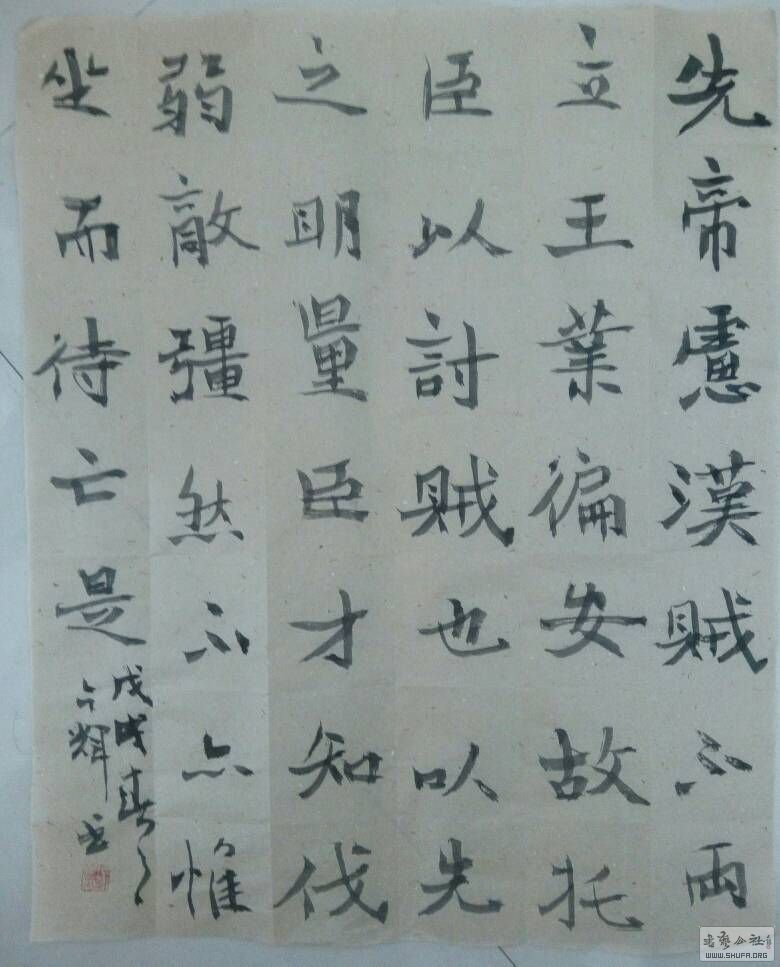 先帝慮漢賊不兩
立王業徧安故托
臣以討賊也以先
之明量臣才知伐
弱敵彊然不亦惟
坐而待亡是
戊戌春
輝書
书艺公社
WWW.SHUFA.ORG